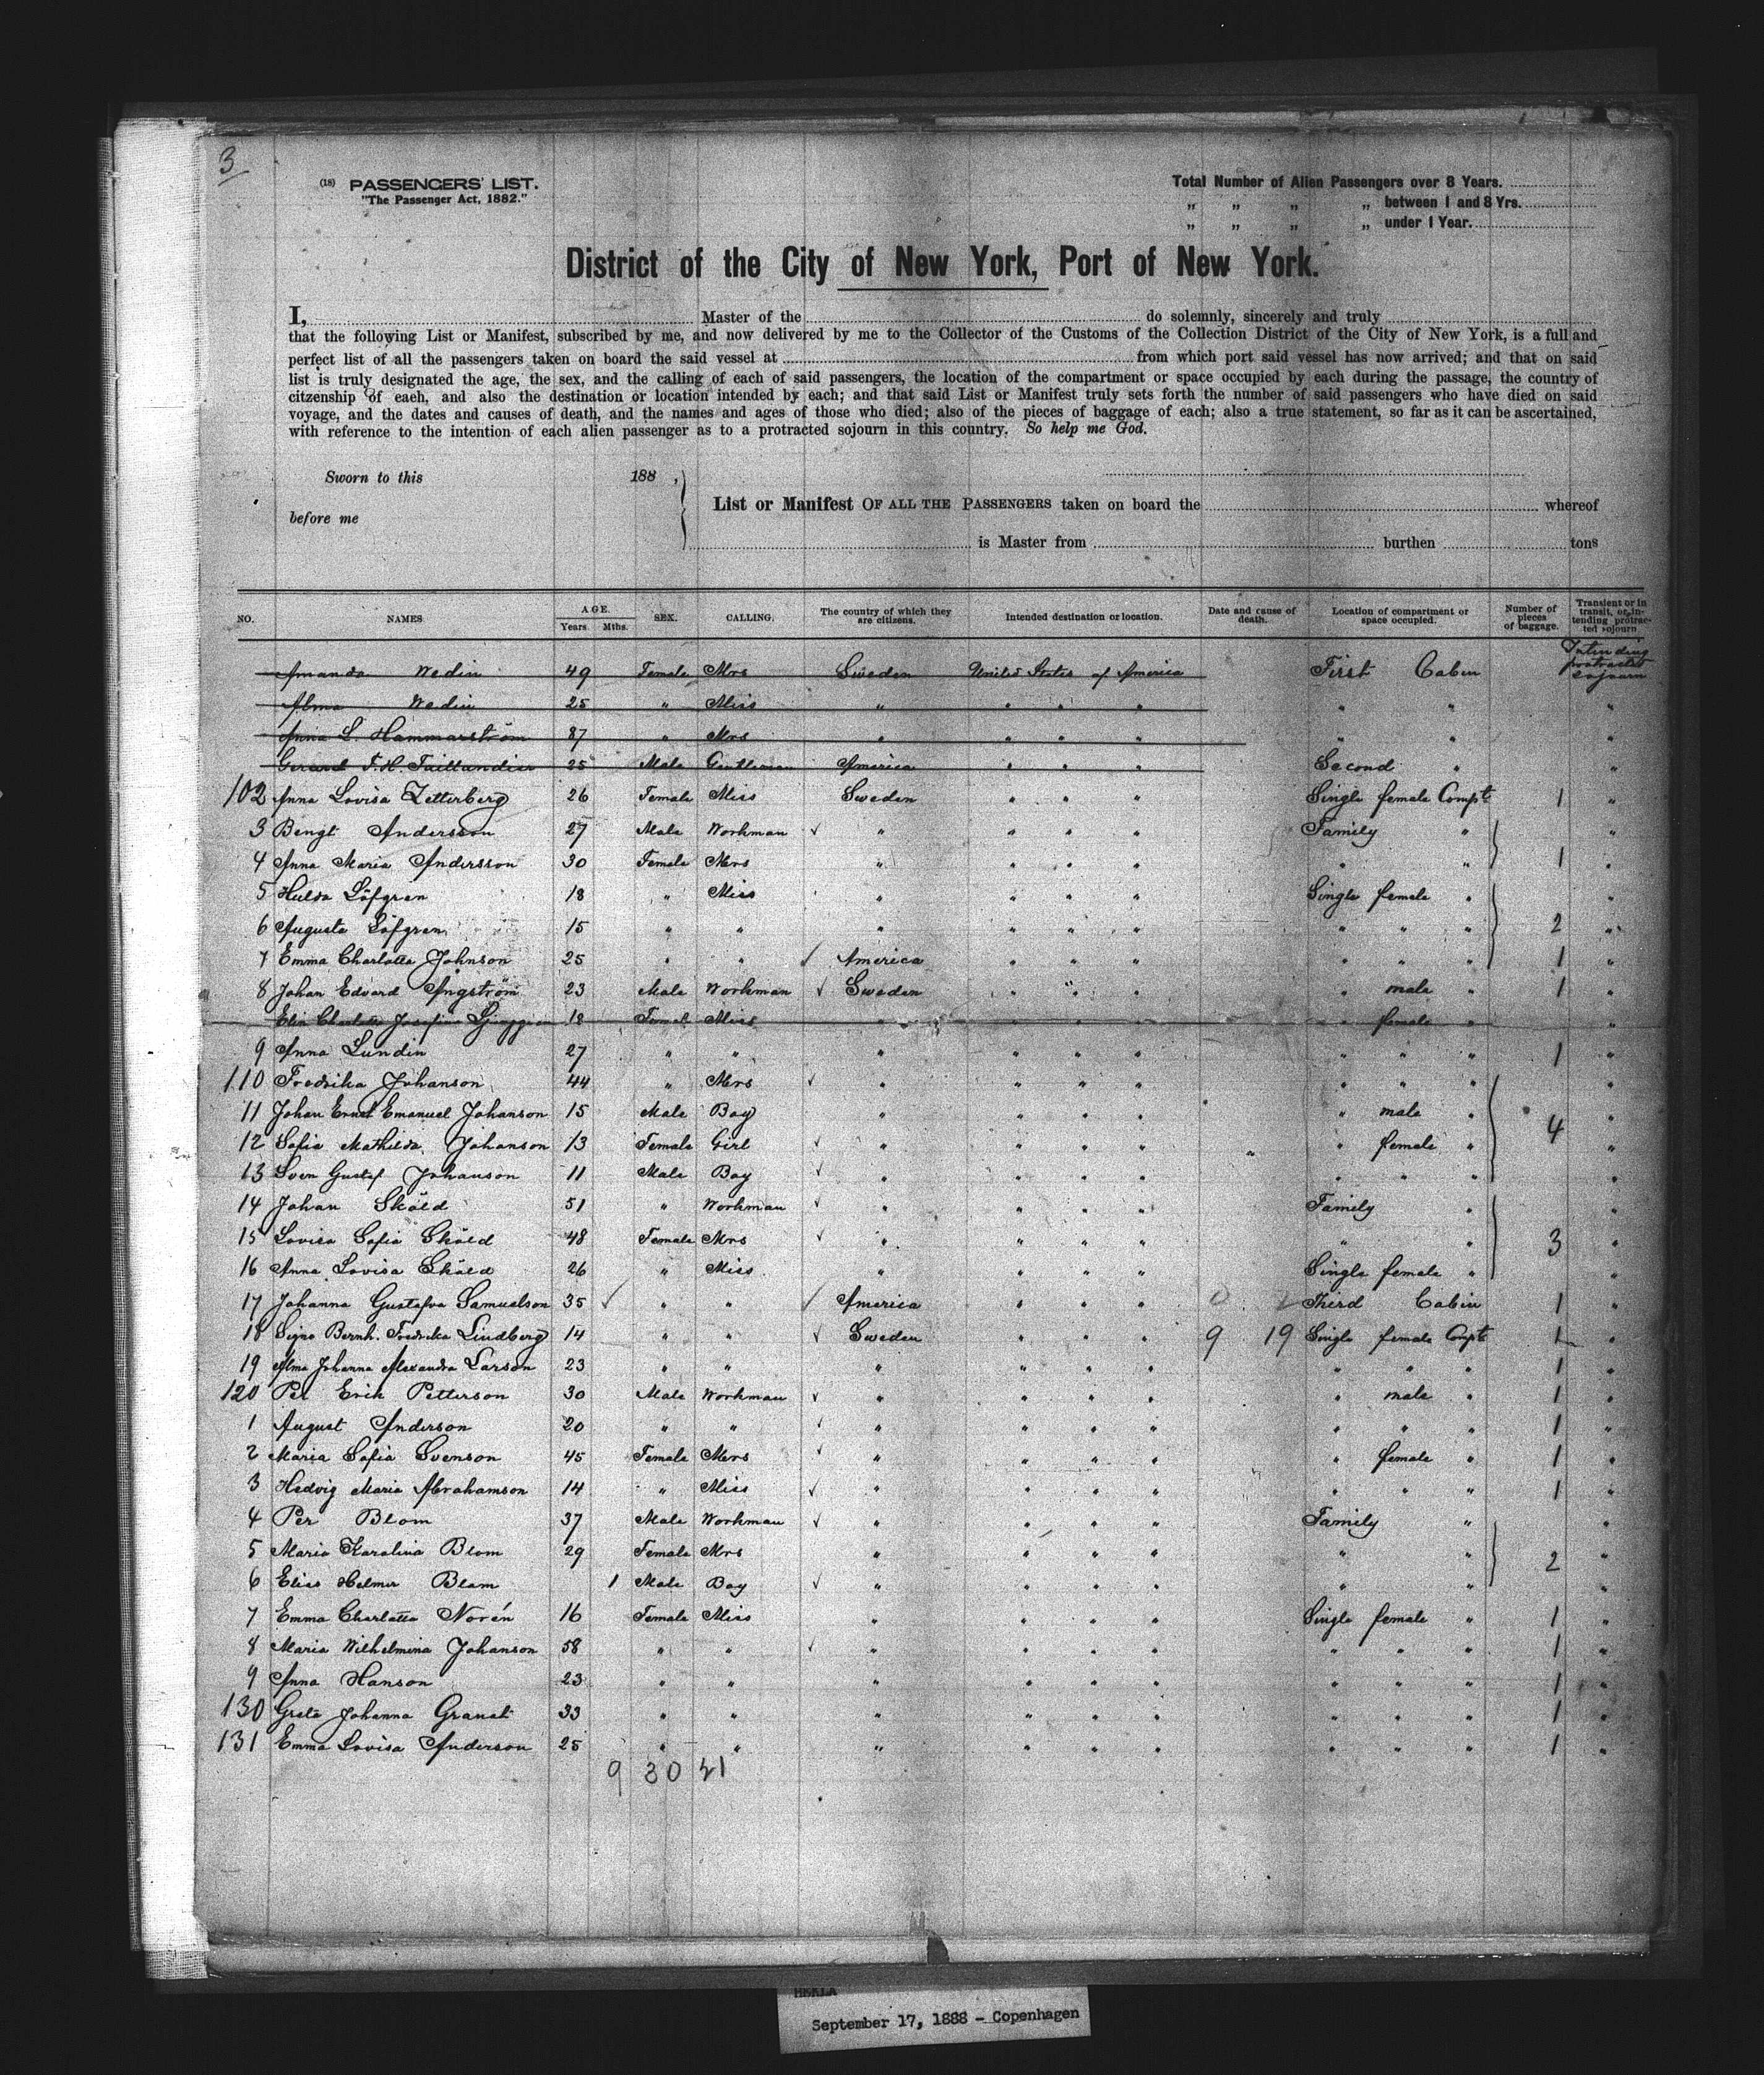 3
(18) PASSENGERS' LIST.
"The Passenger Act, 1882."
Total Number of Alien Passengers over 8 Years.
„ „ „ „ between 1 and 8 Yrs.
„ „ „ „ under 1 Year.
District of the City of New York, Port of New York.
I, Master of the do solemnly, sincerely and truly
that the following List or Manifest, subscribed by me, and now delivered by me to the Collector of the Customs of the Collection District of the City of New York, is a full and
perfect list of all the passengers taken on board the said vessel at from which port said vessel has now arrived; and that on said
list is truly designated the age, the sex, and the calling of each of said passengers, the location of the compartment or space occupied by each during the passage, the country of
citzenship of eaeh, and also the destination or location intended by each; and that said List or Manifest truly sets forth the number of said passengers who have died on said
voyage, and the dates and causes of death, and the names and ages of those who died; also of the pieces of baggage of each; also a true statement, so far as it can be ascertained,
with reference to the intention of each alien passenger as to a protracted sojourn in this country. So help me God.
Sworn to this 188 ,
before me
List or Manifest OF ALL THE PASSENGERS taken on board the whereof
is Master from burthen tons
NO. NAMES AGE. Years Mths. SEX. CALLING. The country of which they are citizens. Intended destination or location. Date and cause of death. Location of compartment or space occupied. Number of pieces of baggage. Transient or in transit, or intending protracted sojourn
Amanda Wedin 49 Female Mrs Sweden United States of America First Cabin Intending protracted sojourn
Alma Wedin 25 " Miss " " " " " " "
Anna L. Hammarström 87 " Mrs " " " " " " "
Gerard F. H. Taillandier 25 Male Gentleman America " " " Second " "
102 Anna Lovisa Zetterberg 26 Female Miss Sweden " " " Single female Compt 1 "
3 Bengt Andersson 27 Male Workman " " " " Family " "
4 Anna Maria Andersson 30 Female Mrs " " " " " " 1 "
5 Hulda Löfgren 18 " Miss " " " " Single female " "
6 Augusta Löfgren 15 " " " " " " " " " 2 "
7 Emma Charlotta Johnson 25 " " America " " " " " " 1 "
8 Johan Edvard Ångström 23 Male Workman Sweden " " " " male " 1 "
Elin Charlotta Josefina 18 Female Miss " " female " "
9 Anna Lundin 27 " " " " " " " " " 1 "
110 Fredrika Johanson 44 " Mrs " " " " " " " "
11 Johan Ernst Emanuel Johanson 15 Male Boy " " " " " male " "
12 Sofia Mathilda Johanson 13 Female Girl " " " " " female " 4 "
13 Sven Gustaf Johanson 11 Male Boy " " " " " " " "
14 Johan Sköld 51 " Workman " " " " Family " "
15 Lovisa Sofia Sköld 48 Female Mrs " " " " " " 3 "
16 Anna Lovisa Sköld 26 " Miss " " " " Single female " "
17 Johanna Gustafva Samuelson 35 " " America " " " Third Cabin 1 "
18 Signe Bernh. Fredrika Lindberg 14 " " Sweden " " " 9 19 Single female Compt 1 "
19 Alma Johanna Alexandra Larson 23 " " " " " " " " " 1 "
120 Per Erik Petterson 30 Male Workman " " " " " male " 1 "
1 August Anderson 20 " " " " " " " " " 1 "
2 Maria Sofia Svenson 45 Female Mrs " " " " " female " 1 "
3 Hedvig Maria Abrahamson 14 " Miss " " " " " " " 1 "
4 Per Blom 37 Male Workman " " " " Family " "
5 Maria Karolina Blom 29 Female Mrs " " " " " " 2 "
6 Elias Helmer Blom 1 Male Boy " " " " " " "
7 Emma Charlotta Norén 16 Female Miss " " " " Single female " 1 "
8 Maria Wilhelmina Johanson 58 " " " " " " " " " 1 "
9 Anna Hanson 23 " " " " " " " " " 1 "
130 Greta Johanna Granat 33 " " " " " " " " " 1 "
131 Emma Lovisa Anderson 25 " " " " " " " " " 1 "
9 30 21
HEKLA
September 17, 1888 - Copenhagen